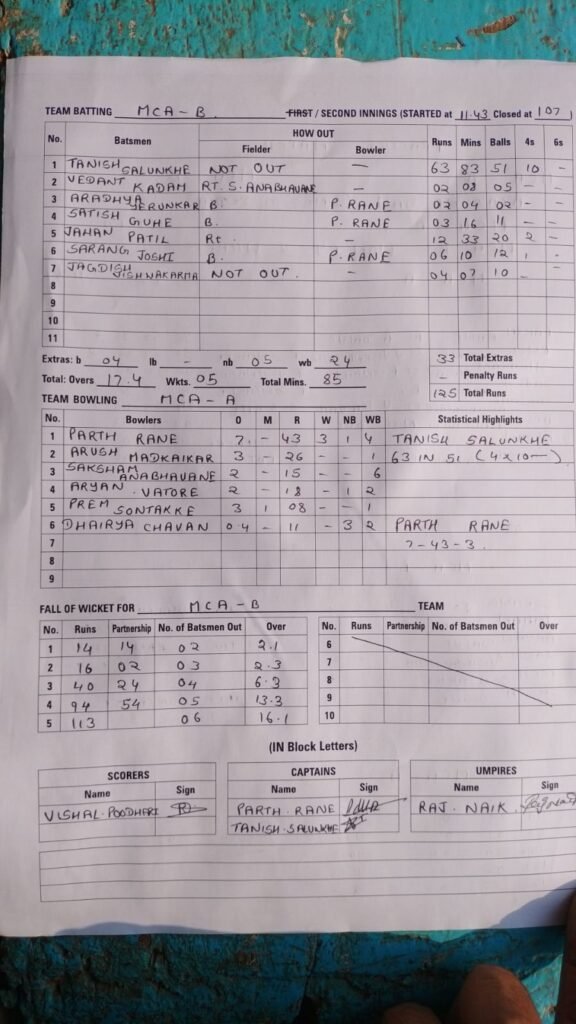 TEAM BATTING MCA - B. FIRST / SECOND INNINGS (STARTED at 11.43 Closed at 107
No. Batsmen HOW OUT Runs Mins Balls 4s 6s
Fielder Bowler
1 TANISH SALUNKHE NOT OUT — 63 83 51 10 -
2 VEDANT KADAM RT. S. ANABHAVANE — 02 08 05 - -
3 ARADHYA JERUNKAR B. P. RANE 02 04 02 - -
4 SATISH GUHE B. P. RANE 03 16 11 - -
5 JAHAN PATIL Rt. - 12 33 20 2 -
6 SARANG JOSHI B. P. RANE 06 10 12 1 -
7 JAGDISH VISHWAKARMA NOT OUT. - 04 07 10 -
8
9
10
11
Extras: b 04 lb - nb 05 wb 24 33 Total Extras
- Penalty Runs
Total: Overs 17.4 Wkts. 05 Total Mins. 85 125 Total Runs
TEAM BOWLING MCA - A
No. Bowlers O M R W NB WB Statistical Highlights
1 PARTH RANE 7. - 43 3 1 4 TANISH SALUNKHE
2 ARUSH MADKAIKAR 3 - 26 - - 1 63 IN 51 (4x10—)
3 SAKSHAM ANABHAVANE 2 - 15 - - 6
4 ARYAN. VATORE 2 - 18 - 1 2
5 PREM SONTAKKE 3 1 08 - - 1
6 DHAIRYA CHAVAN 0.4 - 11 - 3 2 PARTH RANE
7 7-43-3.
8
9
FALL OF WICKET FOR MCA - B TEAM
No. Runs Partnership No. of Batsmen Out Over No. Runs Partnership No. of Batsmen Out Over
1 14 14 02 2.1 6
2 16 02 03 2.3 7
3 40 24 04 6.3 8
4 94 54 05 13.3 9
5 113 06 16.1 10
(IN Block Letters)
SCORERS CAPTAINS UMPIRES
Name Sign Name Sign Name Sign
VISHAL. POOJHARI PARTH. RANE RAJ. NAIK.
TANISH. SALUNKHE